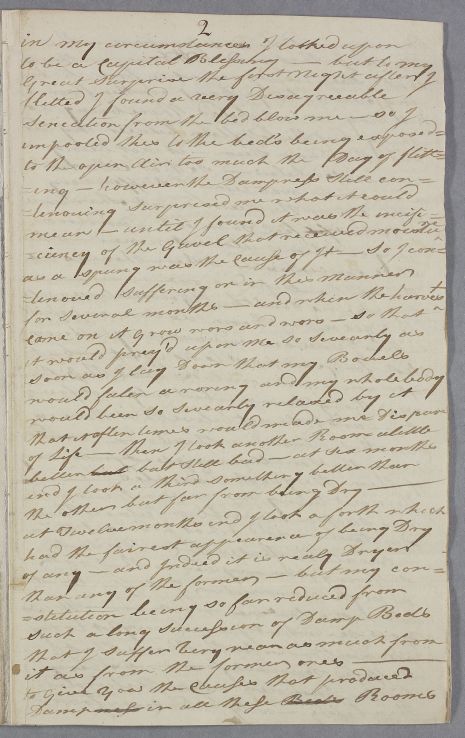 2
in my circumstances I looked upon
to be a Capital Blessing — but to my
Great Surprise the first night after I
Shetled I found a very Disagreeable
Sencation from the bed blow me — so I
impooled this to the beds being exposed
to the open Air too much the Day of flitt=
=ing — however the Dampness still con=
=tenoving Surprised me what it could
mean — until I found it was the insifi=
=ciancy of the Gravel that received moistur
as a spung was the Cause of It — so I con=
=tenoved Suffering on in this manner
for Several months — and when the harvest
came on it grow wors and wors — so that
it would preay'd upon me so sevearly as
soon as I lay Doun that my Bowels
would falen a roring and my whole body
would been so sevearly relaxed by it
that it often times would made me Dispair
of Life — then I took another Room a little
better but but still bad — at six months
end I took a third something better than
the other but far from being Dry —
at Twelve months end I took a forth which
had the fairest appearence of being Dry
of any — and Indeed it is realy Dryer
than any of the former — but my con=
=stitution being so far reduced from
such a long sucession of Damp Beds
that I suffer very near as much from
it as from the former ones —
to Give you the Causes that produced
Dampness in all these Rooms